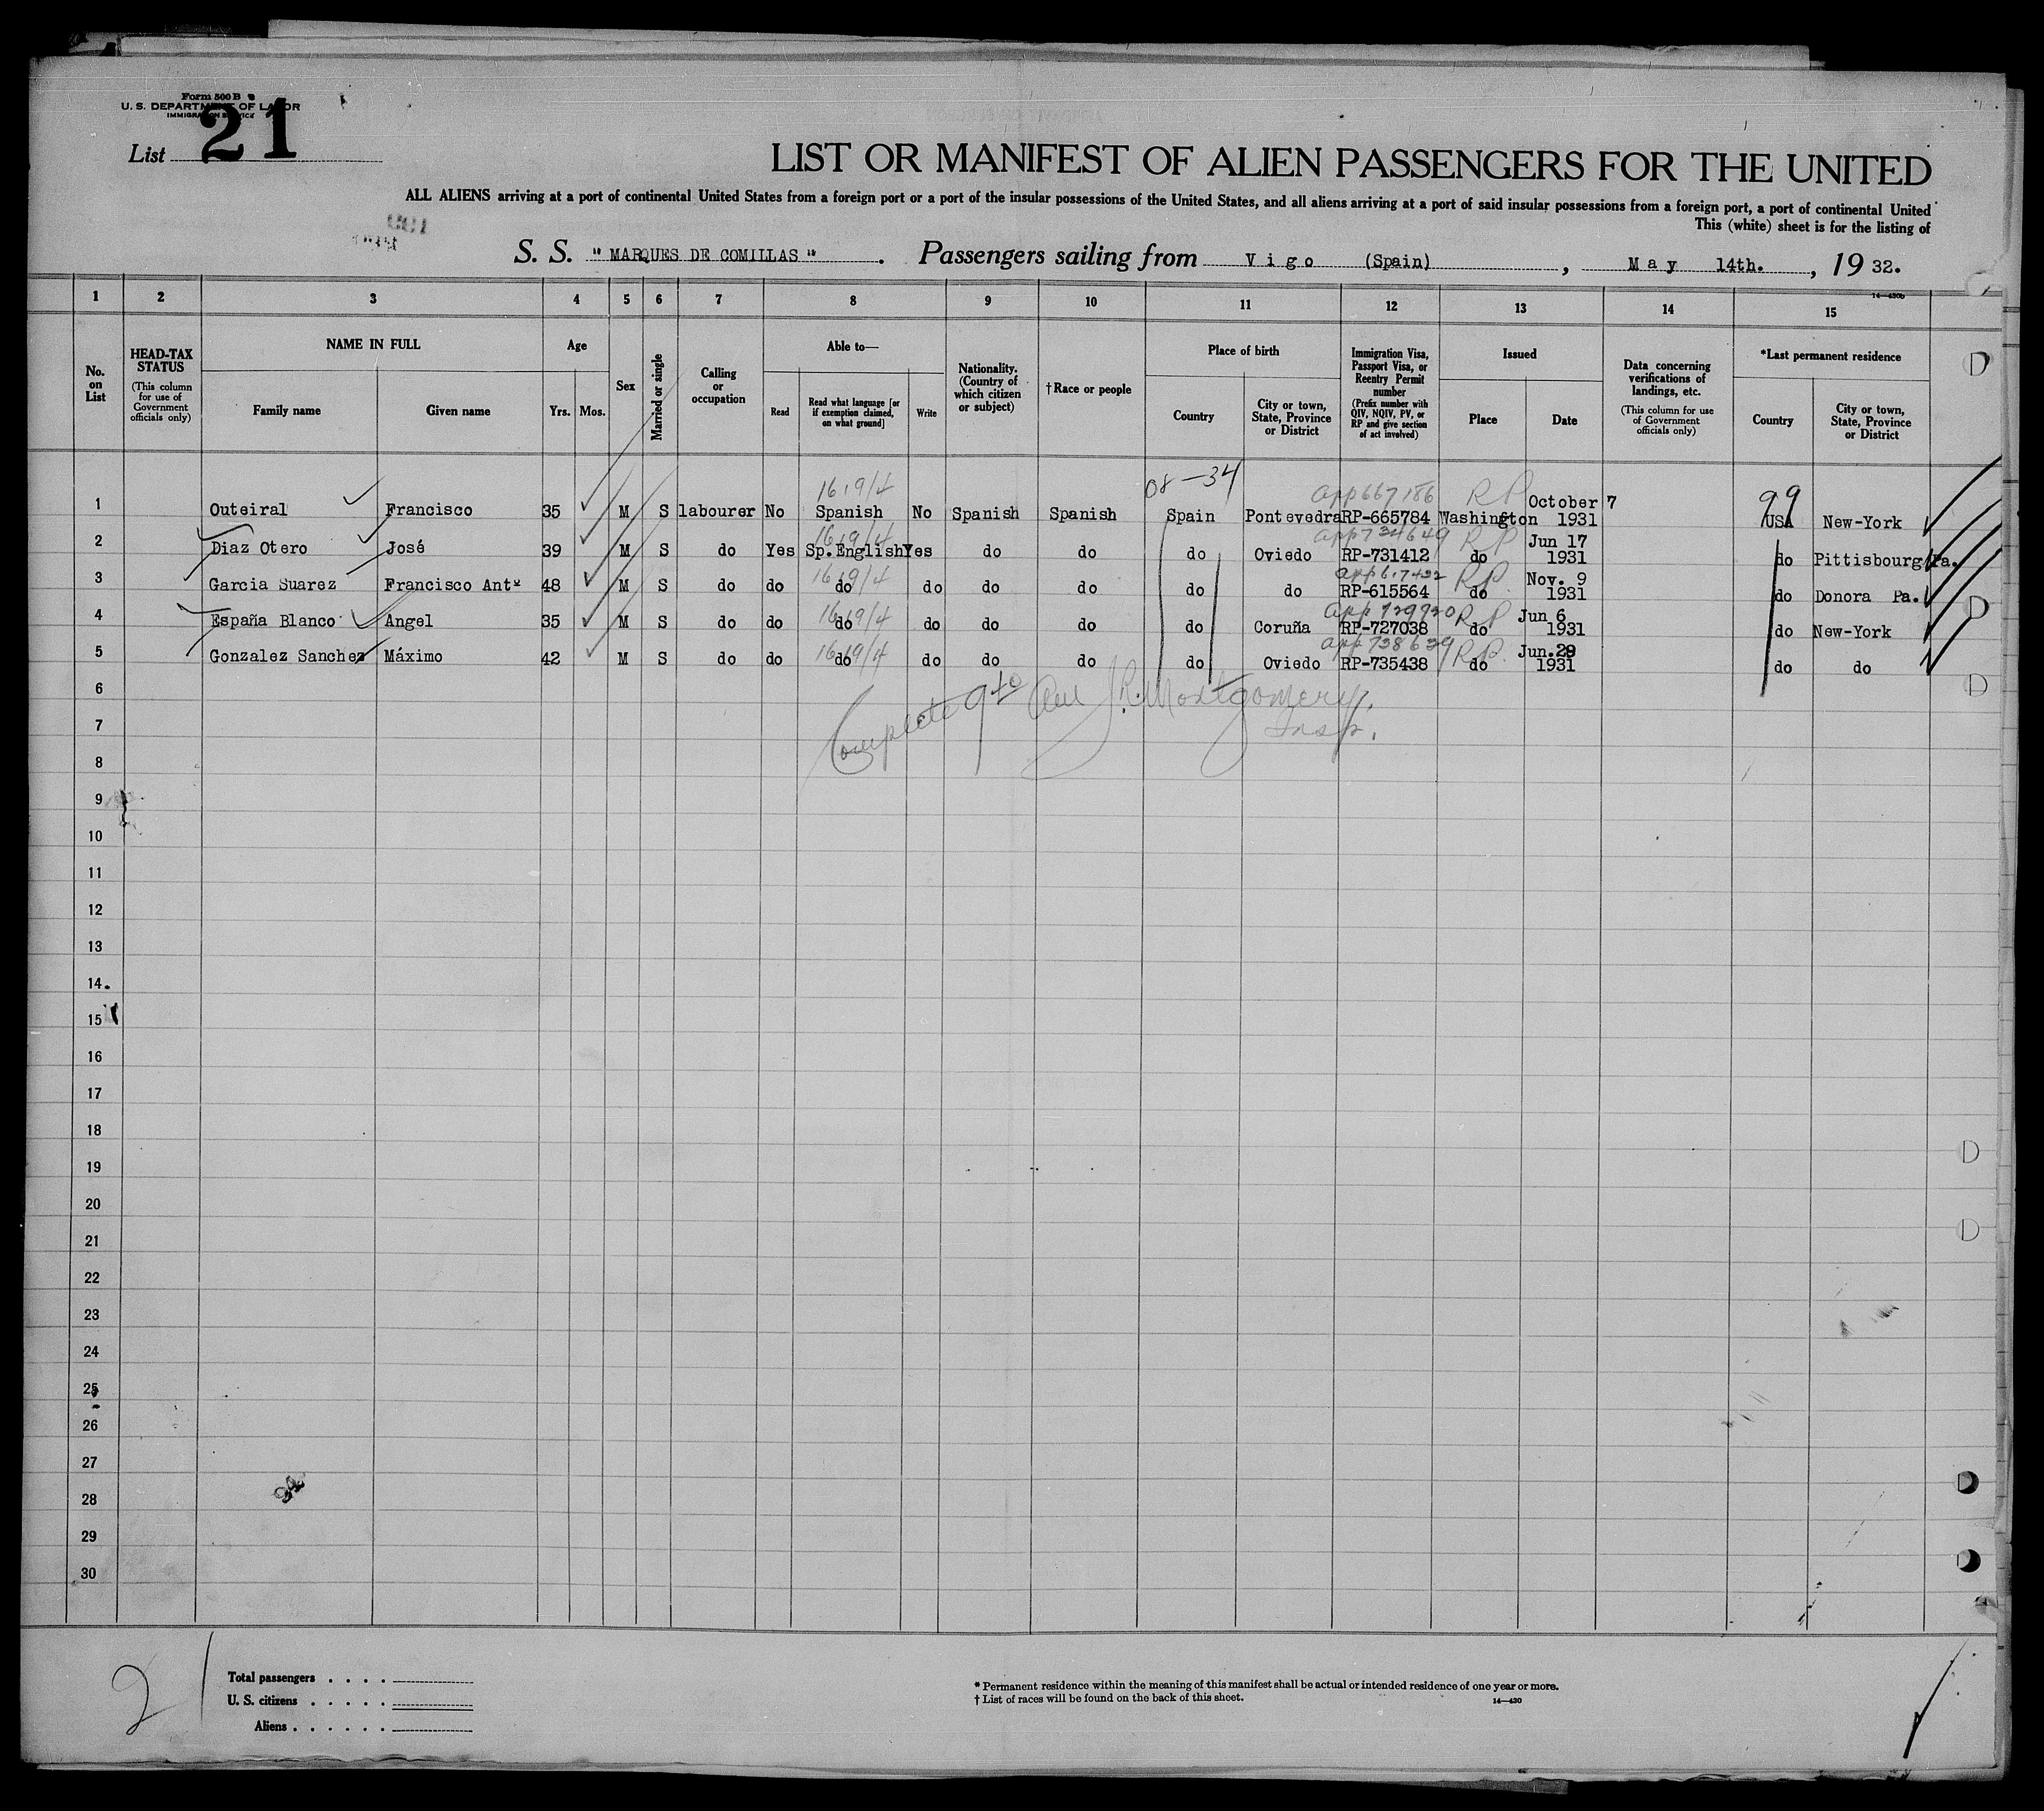 Form 500 B
U. S. DEPARTMENT OF LABOR
IMMIGRATION SERVICE
List 21
LIST OR MANIFEST OF ALIEN PASSENGERS FOR THE UNITED
ALL ALIENS arriving at a port of continental United States from a foreign port or a port of the insular possessions of the United States, and all aliens arriving at a port of said insular possessions from a foreign port, a port of continental United
This (white) sheet is for the listing of
S. S. "MARQUES DE COMILLAS". Passengers sailing from Vigo (Spain), May 14th., 1932.
14—430b
1 2 3 4 5 6 7 8 9 10 11 12 13 14 15
No. on List
HEAD-TAX STATUS
(This column for use of Government officials only)
NAME IN FULL
Family name Given name
Age
Yrs. Mos.
Sex
Married or single
Calling or occupation
Able to—
Read Read what language [or if exemption claimed, on what ground] Write
Nationality. (Country of which citizen or subject)
†Race or people
Place of birth
Country City or town, State, Province or District
Immigration Visa, Passport Visa, or Reentry Permit number
(Prefix number with QIV, NQIV, PV, or RP and give section of act involved)
Issued
Place Date
Data concerning verifications of landings, etc.
(This column for use of Government officials only)
*Last permanent residence
Country City or town, State, Province or District
16,9/4 08-34 app667186 RP 99
1 Outeiral Francisco 35 M S labourer No Spanish No Spanish Spanish Spain Pontevedra RP-665784 Washington October 7 1931 USA New-York
16,9/4 app734649 RP
2 Diaz Otero José 39 M S do Yes Sp.English Yes do do do Oviedo RP-731412 do Jun 17 1931 do Pittisbourg Pa.
16,9/4 app617432 RP
3 Garcia Suarez Francisco Antº 48 M S do do do do do do do do RP-615564 do Nov. 9 1931 do Donora Pa.
16,9/4 app729920 RP
4 España Blanco Angel 35 M S do do do do do do do Coruña RP-727038 do Jun 6 1931 do New-York
16,9/4 app738639 RP
5 Gonzalez Sanchez Máximo 42 M S do do do do do do do Oviedo RP-735438 do Jun.29 1931 do do
6
Complete 9 to J.R. Montgomery,
7
Insp.
8
9
10
11
12
13
14
15
16
17
18
19
20
21
22
23
24
25
26
27
28
29
30
2
Total passengers
U. S. citizens
Aliens
* Permanent residence within the meaning of this manifest shall be actual or intended residence of one year or more.
† List of races will be found on the back of this sheet.
14—430